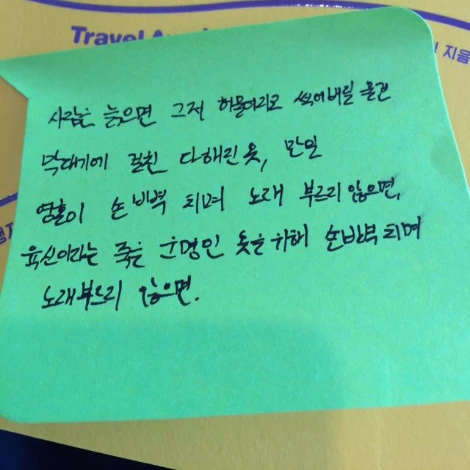 Travel
지음
사람은 늙으면 그저 허물어지고 썩어버릴 물건
막대기에 걸친 다해진 옷, 만일
영혼이 손바벽 치며 노래 부르지 않으면,
육신이라는 죽을 운명인 옷을 위해 손바벽 치며
노래부르지 않으면.